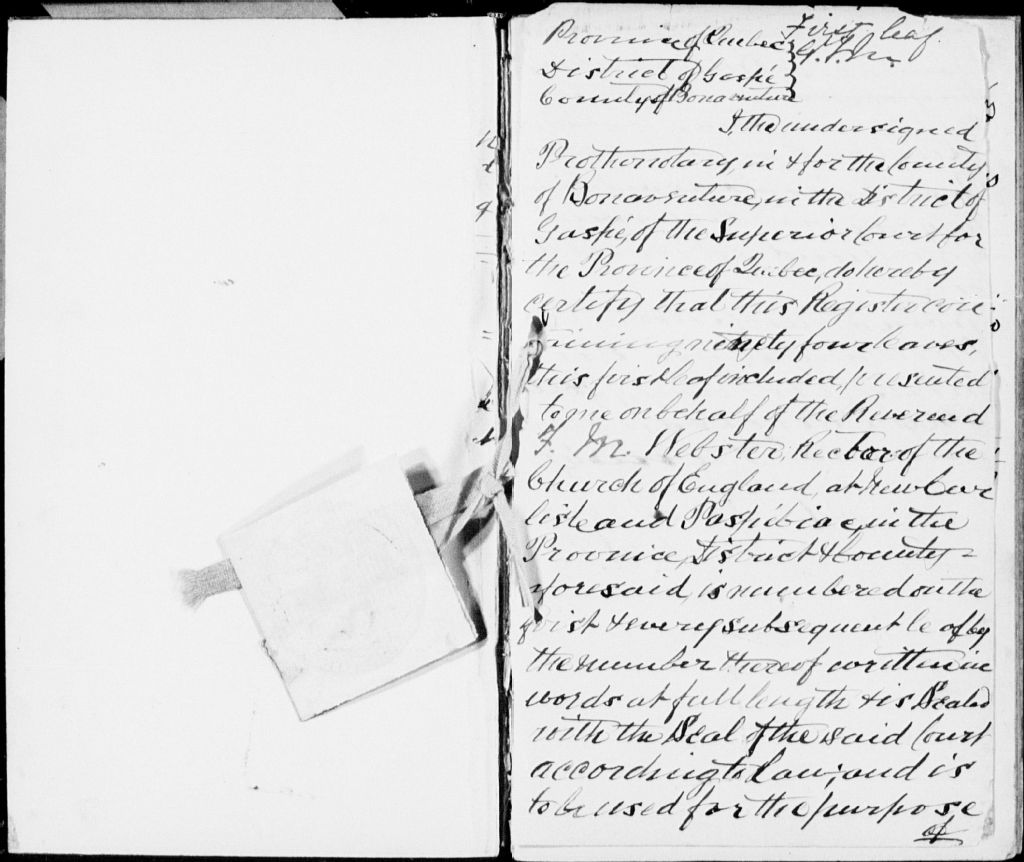 First leaf.
Province of Quebec
District of Gaspé
County of Bonaventure
I, the undersigned
Prothonotary, in & for the County
of Bonaventure, in the District of
Gaspé, of the Superior Court for
the Province of Quebec, do hereby
certify that this Register con-
taining ninety four leaves,
this first leaf included, presented
to me on behalf of the Reverend
F. M. Webster, Rector of the
Church of England, at New Car
lisle and Paspébiac, in the
Province, District & County
aforesaid, is numbered on the
first & every subsequent leaf by
the number thereof written in
words at full length & is Sealed
with the Seal of the said Court
according to Law; and is
to be used for the purpose
of